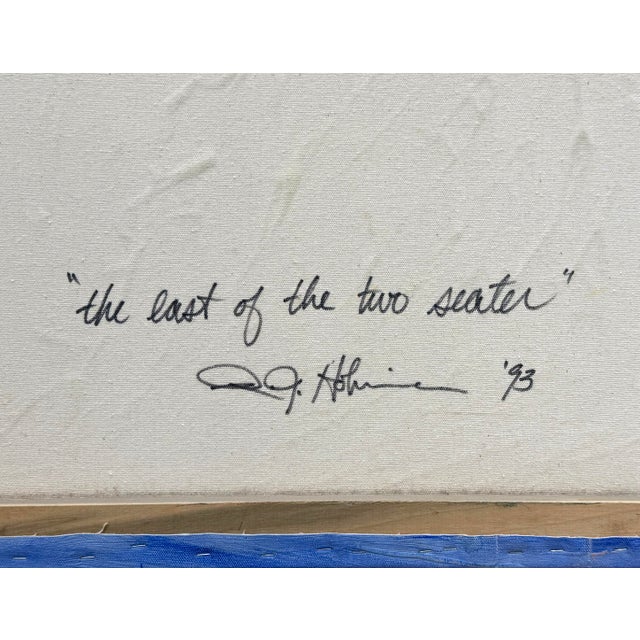 "the last of the two seater"
J. Hohn '93